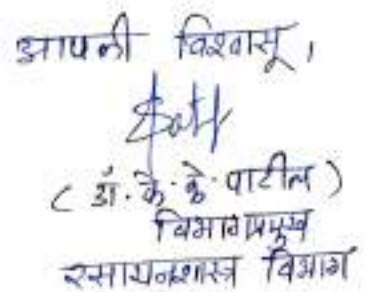 आपली विश्वासू,
( डॉ. के. के. पाटील )
विभागप्रमुख
रसायनशास्त्र विभाग